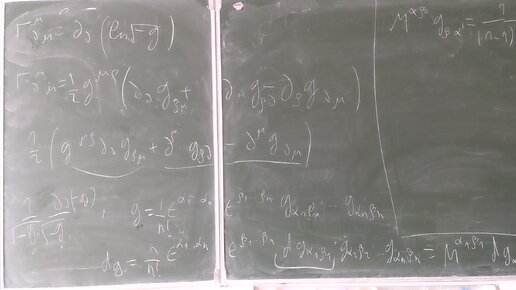 Γ^μ_{νμ} = ∂_ν (ln√-g)
Γ^μ_{νμ} = 1/2 g^{μρ} (∂_ν g_{ρμ} + ∂_μ g_{ρν} - ∂_ρ g_{νμ})
1/2 (g^{μρ} ∂_ν g_{ρμ} + ∂^ρ g_{ρν} - ∂^μ g_{νμ})
g = 1/n! ε^{α_1...α_n} ε^{β_1...β_n} g_{α_1β_1} ... g_{α_nβ_n}
dg = n/n! ε^{α_1...α_n} ε^{β_1...β_n} dg_{α_1β_1} · g_{α_2β_2} ... g_{α_nβ_n} = M^{α_1β_1} dg
M^{αβ} g_{βα} = 1/(n-1)